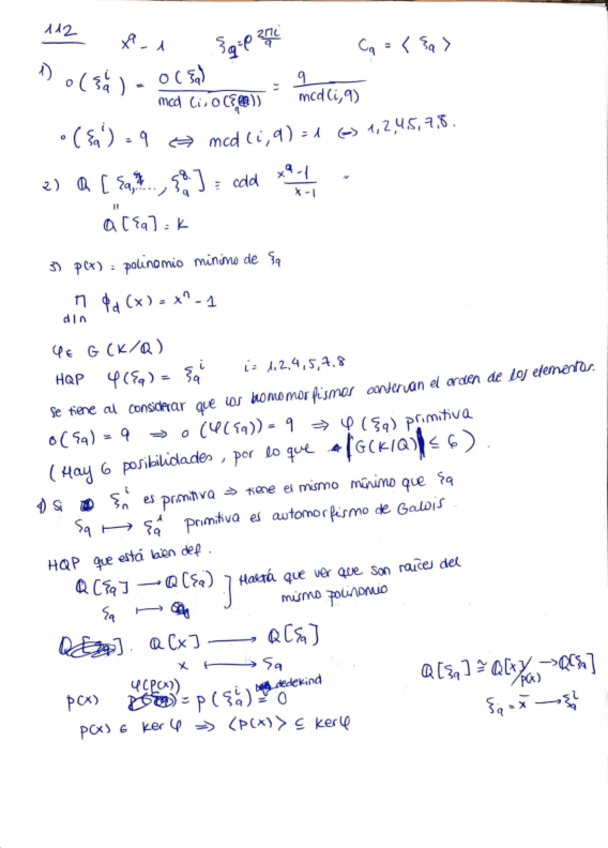 112 x⁹ - 1 ξ₉ = e^{2πi/9} C₉ = < ξ₉ >
1) o(ξ₉ⁱ) = o(ξ₉) / mcd(i, o(ξ₉)) = 9 / mcd(i,9)
o(ξ₉ⁱ) = 9 ⇔ mcd(i,9) = 1 ⇔ 1,2,4,5,7,8.
2) Q[ξ₉, ..., ξ₉⁸] = cdd x⁹-1 / x-1
"
Q[ξ₉] = K
3) p(x) = polinomio mínimo de ξ₉
∏_{d|n} ϕ_d(x) = xⁿ - 1
φ ∈ G(K/Q)
HQP φ(ξ₉) = ξ₉ⁱ i = 1,2,4,5,7,8
Se tiene al considerar que los homomorfismos conservan el orden de los elementos.
o(ξ₉) = 9 ⇒ o(φ(ξ₉)) = 9 ⇒ φ(ξ₉) primitiva
(Hay 6 posibilidades, por lo que |G(K/Q)| ≤ 6).
4) Si ξₙⁱ es primitiva ⇒ tiene el mismo mínimo que ξ₉
ξ₉ ↦ ξ₉ⁱ primitiva es automorfismo de Galois.
HQP que está bien def.
Q[ξ₉] → Q[ξ₉] } Habrá que ver que son raíces del
ξ₉ ↦ mismo polinomio
Q[x] → Q[ξ₉]
x ↦ ξ₉
Q[ξ₉] ≅ Q[x]/p(x) → Q[ξ₉]
ξ₉ = x̄ → ξ₉ⁱ
p(x) φ(p(x)) = p(ξ₉ⁱ) = 0 dedekind
p(x) ∈ ker φ ⇒ <p(x)> ⊆ ker φ